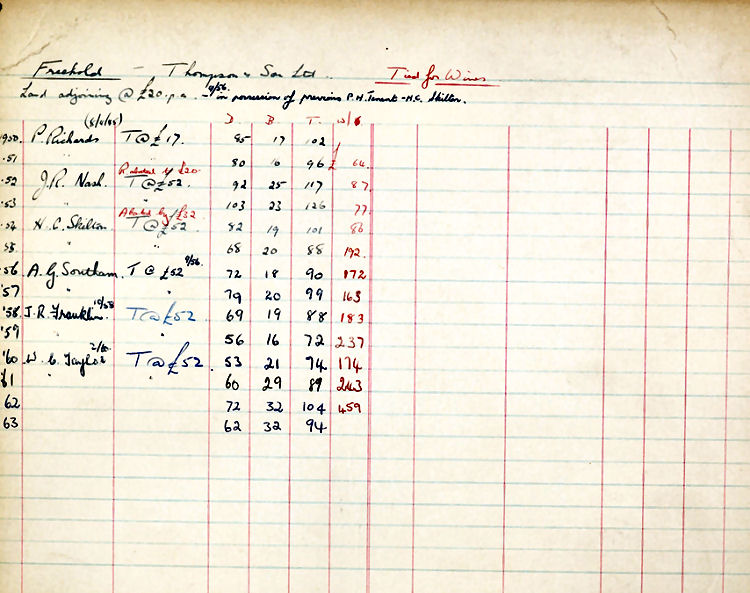 Freehold - Thompson & Son Ltd. Tied for Wines
Land adjoining @ £20. p.a. - 9/56. in possession of previous P.H. Tenant - H.C. Skilton.
(8/4/55) D. B. T. W/S.
1950. P. Richards T @ £17. 85 17 102
.51 " 80 16 96 £ 64.
Rebated by £20
.52 J.R. Nash. T @ £52. 92 25 117 87
.53 " 103 23 126 77.
Abated by £32
.54 H.C. Skilton. T @ £52. 82 19 101 86
55. " 68 20 88 192.
.56 A.G. Southam. T @ £52 9/56. 72 18 90 172
'57 " " 79 20 99 163
'58. J.R. Franklin. 10/58 T @ £52. 69 19 88 183
'59 " 56 16 72 237
'60 W.C. Taylor 2/60 T @ £52. 53 21 74 174
61 " " 60 29 89 243
62 72 32 104 459
63 62 32 94